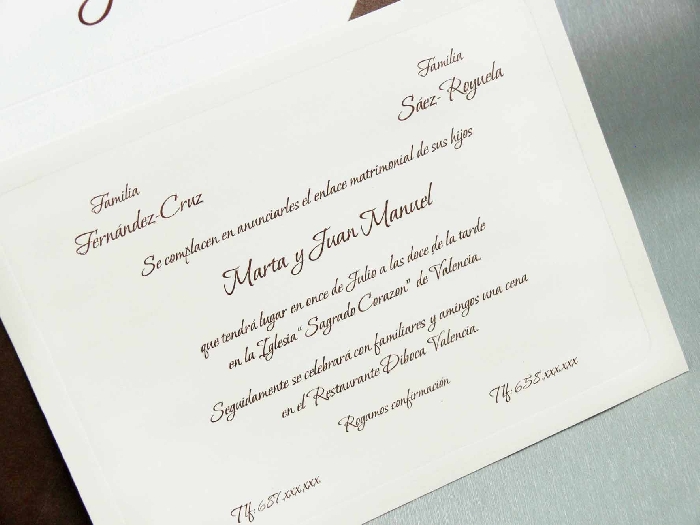 Familia
Fernández-Cruz
Familia
Sáez-Royuela
Se complacen en anunciarles el enlace matrimonial de sus hijos
Marta y Juan Manuel
que tendrá lugar en once de Julio a las doce de la tarde
en la Iglesia "Sagrado Corazon" de Valencia.
Seguidamente se celebrará con familiares y amingos una cena
en el Restaurante Diboca Valencia.
Rogamos confirmación
Tlf: 687.xxx.xxx
Tlf: 658.xxx.xxx